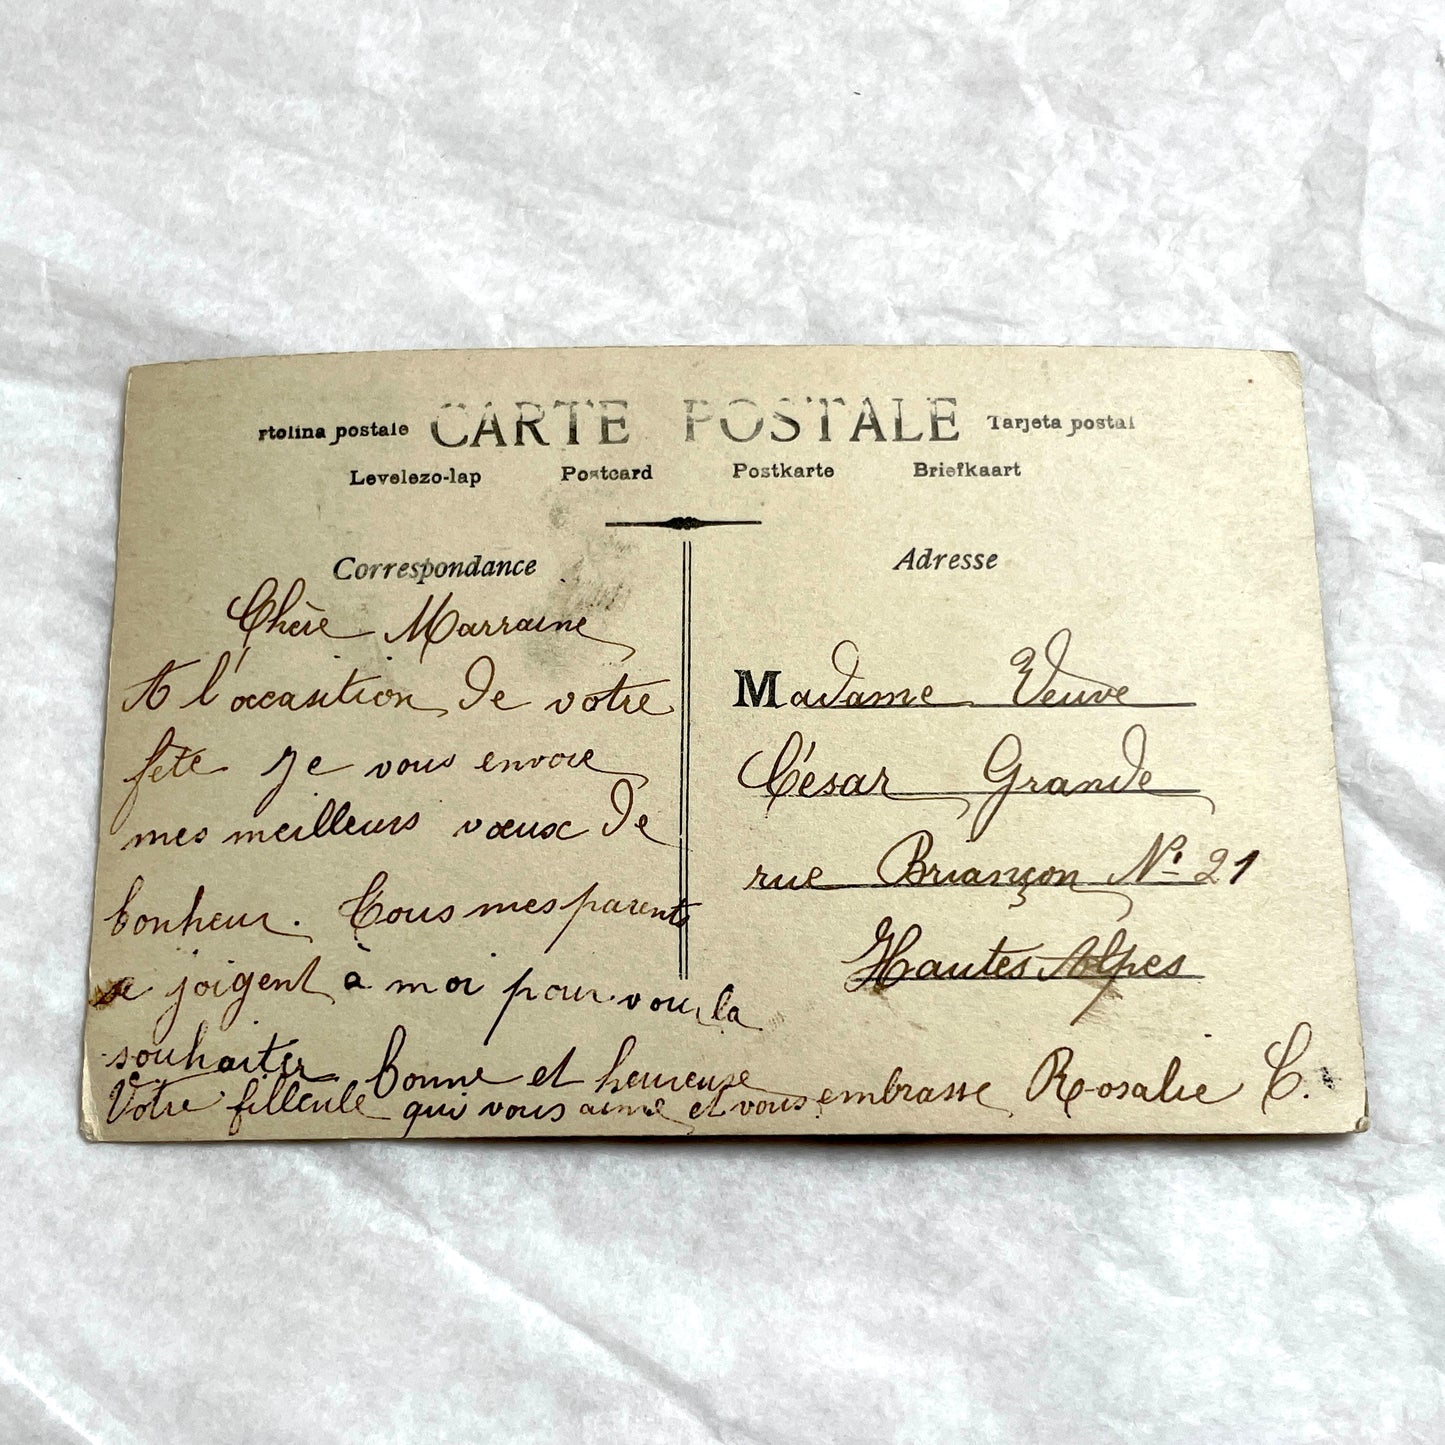 rtolina postale CARTE POSTALE Tarjeta postal
Levelezo-lap Postcard Postkarte Briefkaart
Correspondance
Chère Marraine
A l'occasition de votre
fête Je vous envoie
mes meilleurs vœux de
bonheur. Tous mes parents
se joigent à moi pour vous la
souhaiter bonne et heureuse
Votre filleule qui vous aime et vous embrasse Rosalie C.
Adresse
Madame Veuve
César Grande
rue Briançon No 21
Hautes Alpes